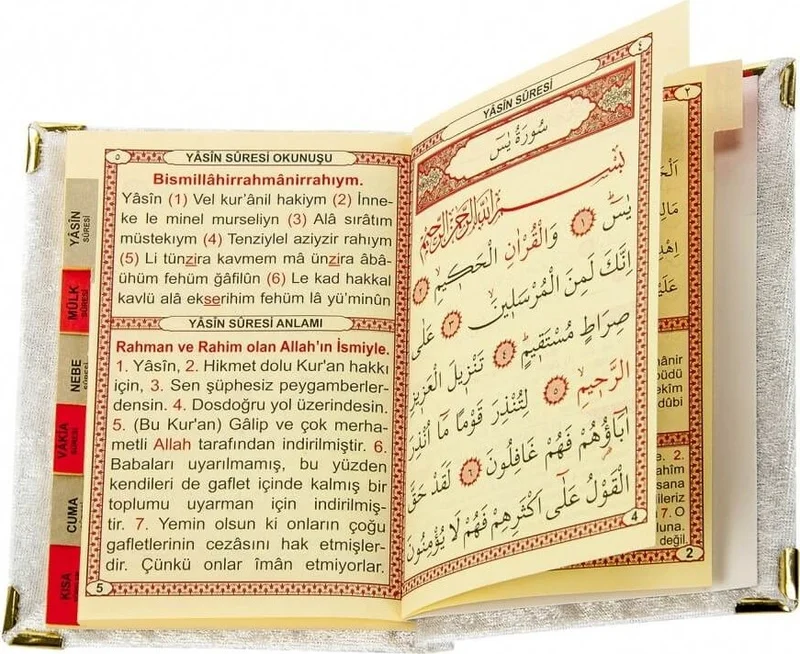 ٥
YÂSÎN SÛRESİ OKUNUŞU
Bismillâhirrahmânirrahıym.
Yâsîn (1) Vel kur'ânil hakiym (2) İnne-
ke le minel murseliyn (3) Alâ sırâtım
müstekıym (4) Tenziylel aziyzir rahıym
(5) Li tünzira kavmem mâ ünzira âbâ-
ühüm fehüm ğafilûn (6) Le kad hakkal
kavlü alâ ekserihim fehüm lâ yü'minûn
YÂSÎN SÛRESİ ANLAMI
Rahman ve Rahim olan Allah'ın İsmiyle.
1. Yâsîn, 2. Hikmet dolu Kur'an hakkı
için, 3. Sen şüphesiz peygamberler-
densin. 4. Dosdoğru yol üzerindesin.
5. (Bu Kur'an) Gâlip ve çok merha-
metli Allah tarafından indirilmiştir. 6.
Babaları uyarılmamış, bu yüzden
kendileri de gaflet içinde kalmış bir
toplumu uyarman için indirilmiş-
tir. 7. Yemin olsun ki onların çoğu
gafletlerinin cezâsını hak etmişler-
dir. Çünkü onlar îmân etmiyorlar.
5
YÂSÎN SÛRESİ
MÜLK SÛRESİ
NEBE
VÂKIA SÛRESİ
CUMA
KISA
٤
YÂSÎN SÛRESİ
سُورَةُ يٰسٓ
بِسْمِ اللّٰهِ الرَّحْمٰنِ الرَّحِيمِ
يٰسٓ ﴿١﴾ وَالْقُرْاٰنِ الْحَكِيمِ ﴿٢﴾
اِنَّكَ لَمِنَ الْمُرْسَلِينَ ﴿٣﴾ عَلٰى
صِرَاطٍ مُسْتَقِيمٍ ﴿٤﴾ تَنْزِيلَ الْعَزِيزِ
الرَّحِيمِ ﴿٥﴾ لِتُنْذِرَ قَوْمًا مَا اُنْذِرَ
اٰبَاؤُهُمْ فَهُمْ غَافِلُونَ ﴿٦﴾ لَقَدْ حَقَّ
الْقَوْلُ عَلٰٓى اَكْثَرِهِمْ فَهُمْ لَا يُؤْمِنُونَ
4
٢
mânir
büdü
ekîm
dûbi
e. 2.
ahîm
sana
ileriz
7. O
luna.
değil.
2